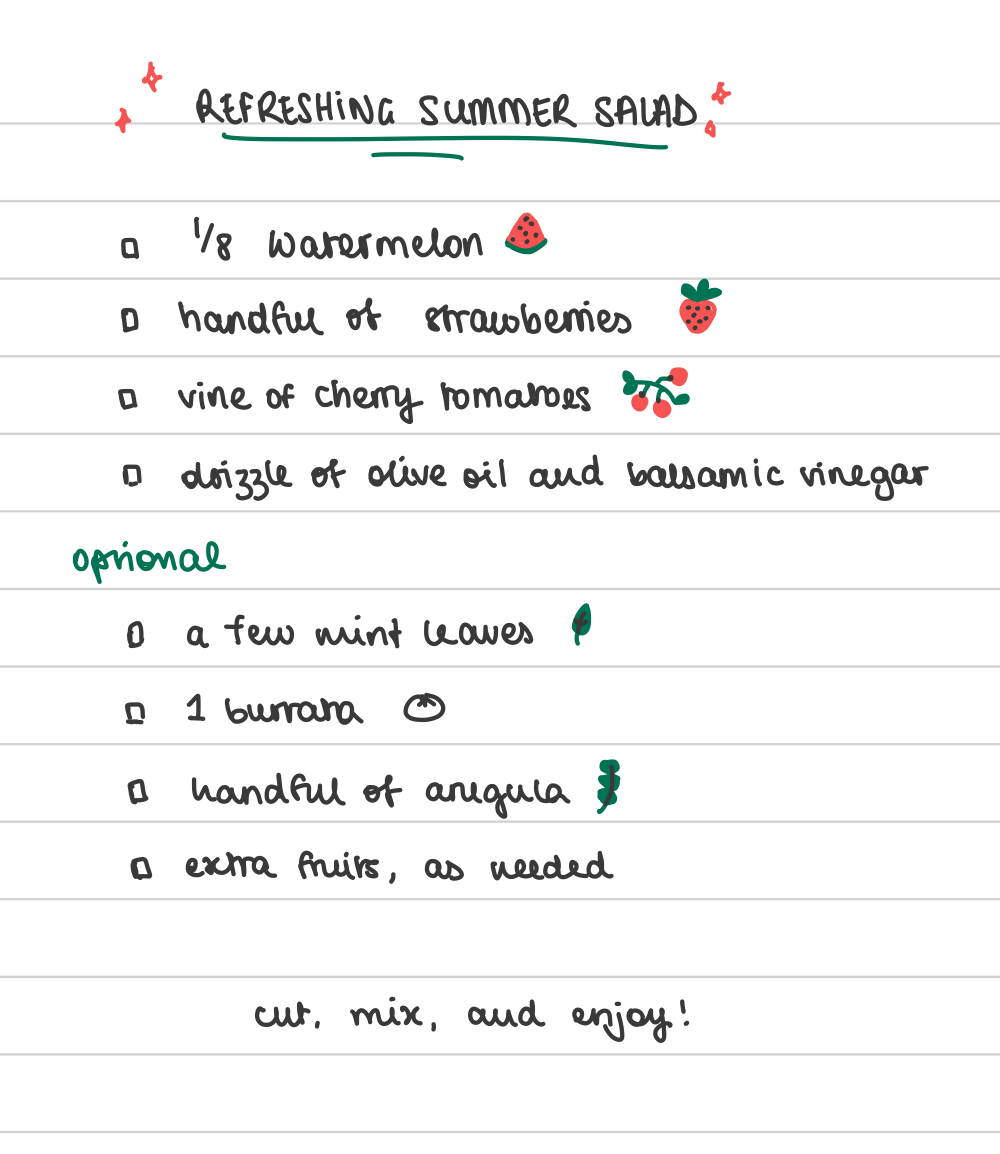 REFRESHING SUMMER SALAD
1/8 watermelon
handful of strawberries
vine of cherry tomatoes
drizzle of olive oil and balsamic vinegar
optional
a few mint leaves
1 burrata
handful of arugula
extra fruits, as needed
cut, mix, and enjoy!